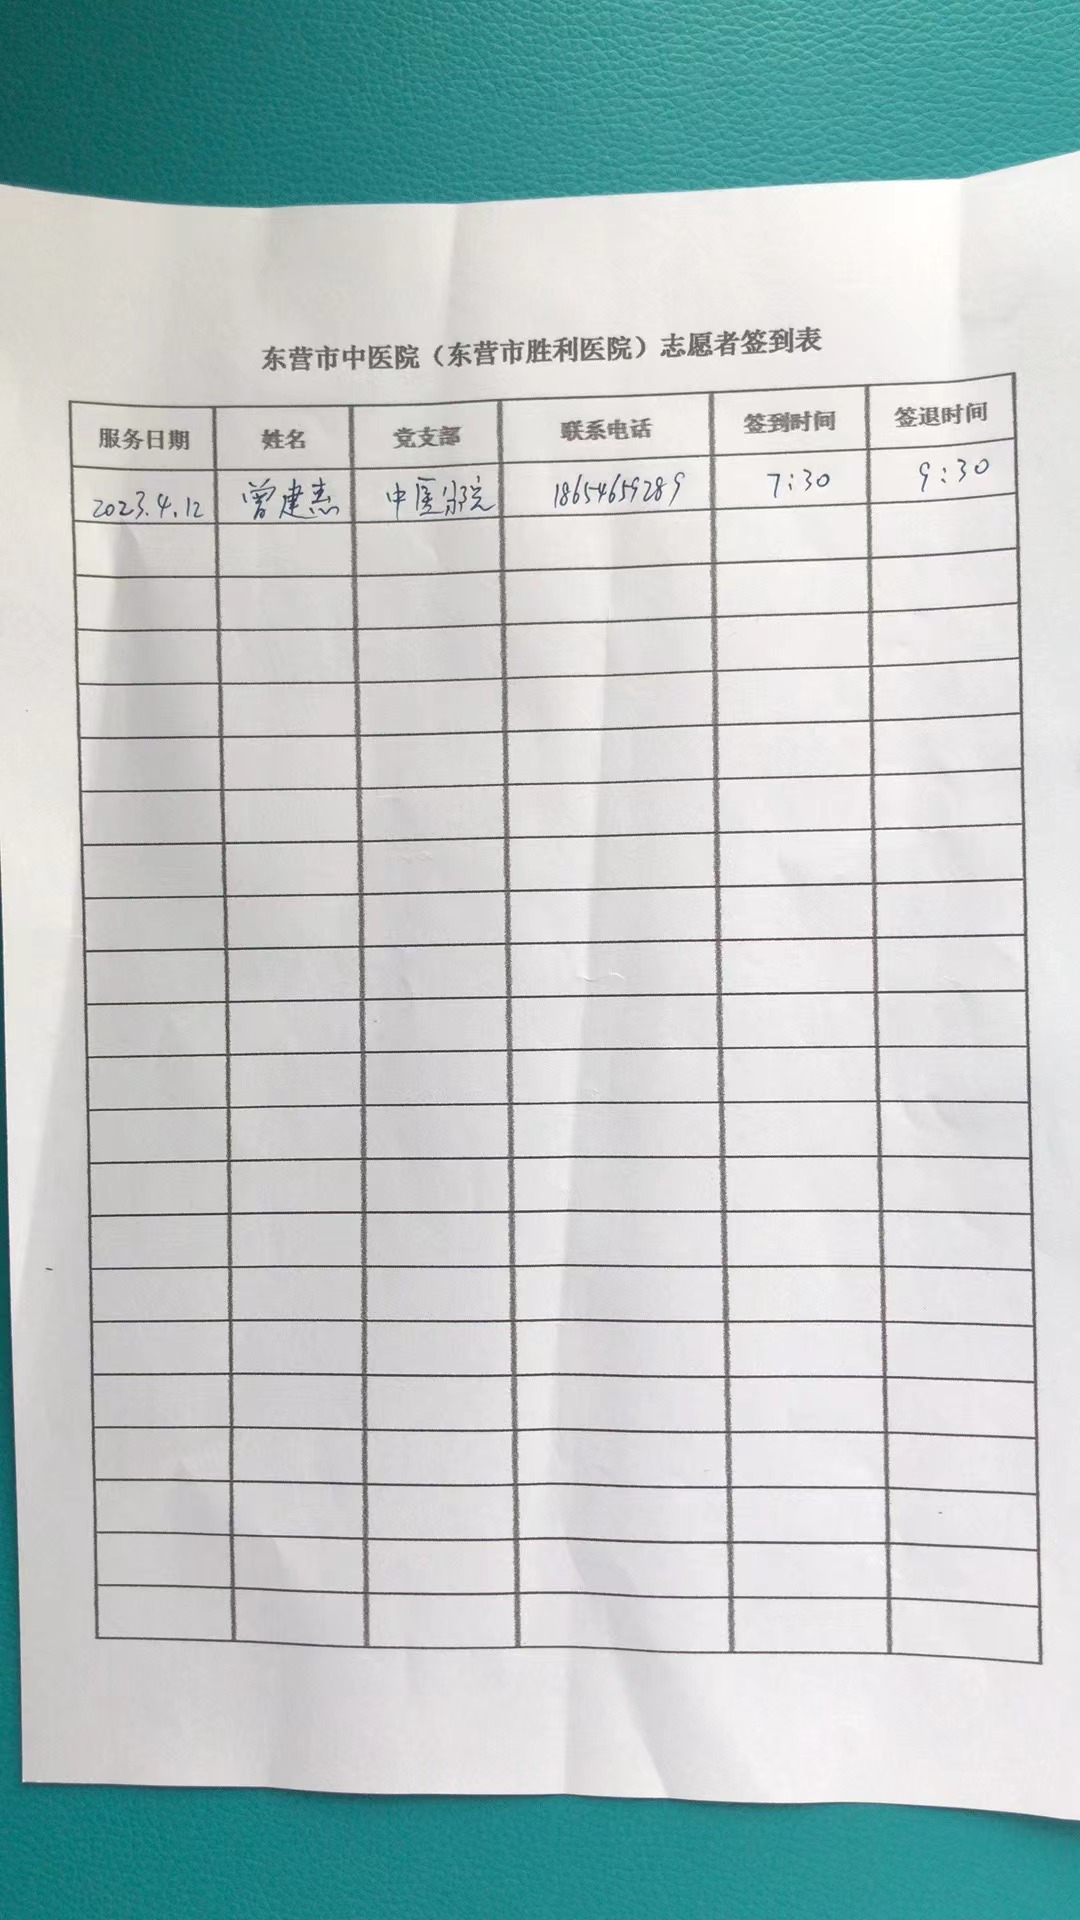 东营市中医院（东营市胜利医院）志愿者签到表
服务日期 姓名 党支部 联系电话 签到时间 签退时间
2023.4.12 曾建 中医院 18654659289 7:30 9:30